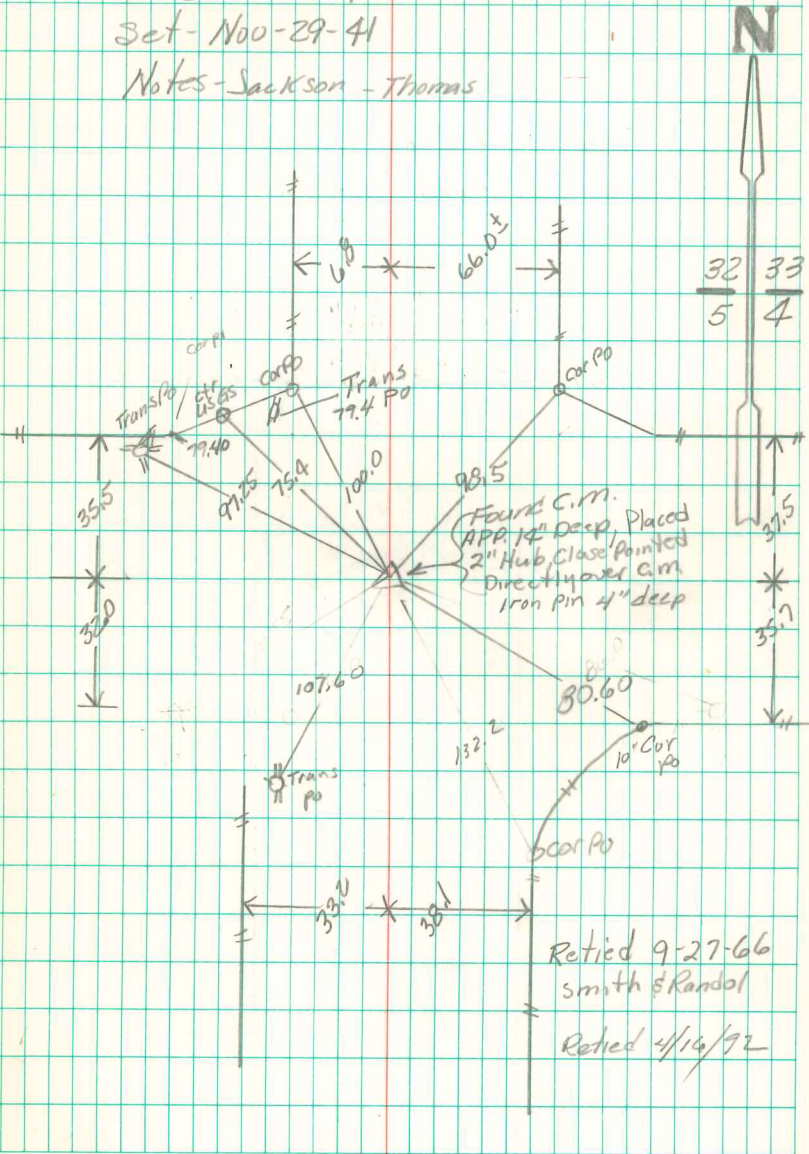 Set - Nov-29-41
Notes - Jackson - Thomas
N
66.0±
32 33
5 4
cor po
Trans po
ctr
USGS
cor po
Trans
79.4 po
cor po
79.40
97.25
75.4
100.0
98.5
35.5
32.0
Found C.M.
APP. 14" Deep, Placed
2" Hub, Close Pointed
Directly over C.M.
Iron Pin 4" deep
37.5
35.7
107.60
80.60
132.2
Trans
po
10" Cor
po
cor po
38.1
Retied 9-27-66
Smith & Randol
Retied 4/16/92